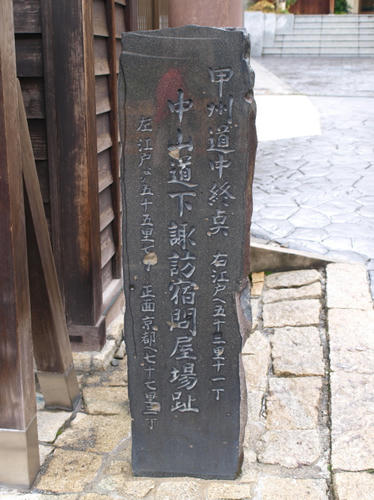 甲州道中終点 右江戸へ五十三里十一丁
中山道下諏訪宿問屋場趾
左江戸へ五十五里七丁 正面京都へ七十七里三丁